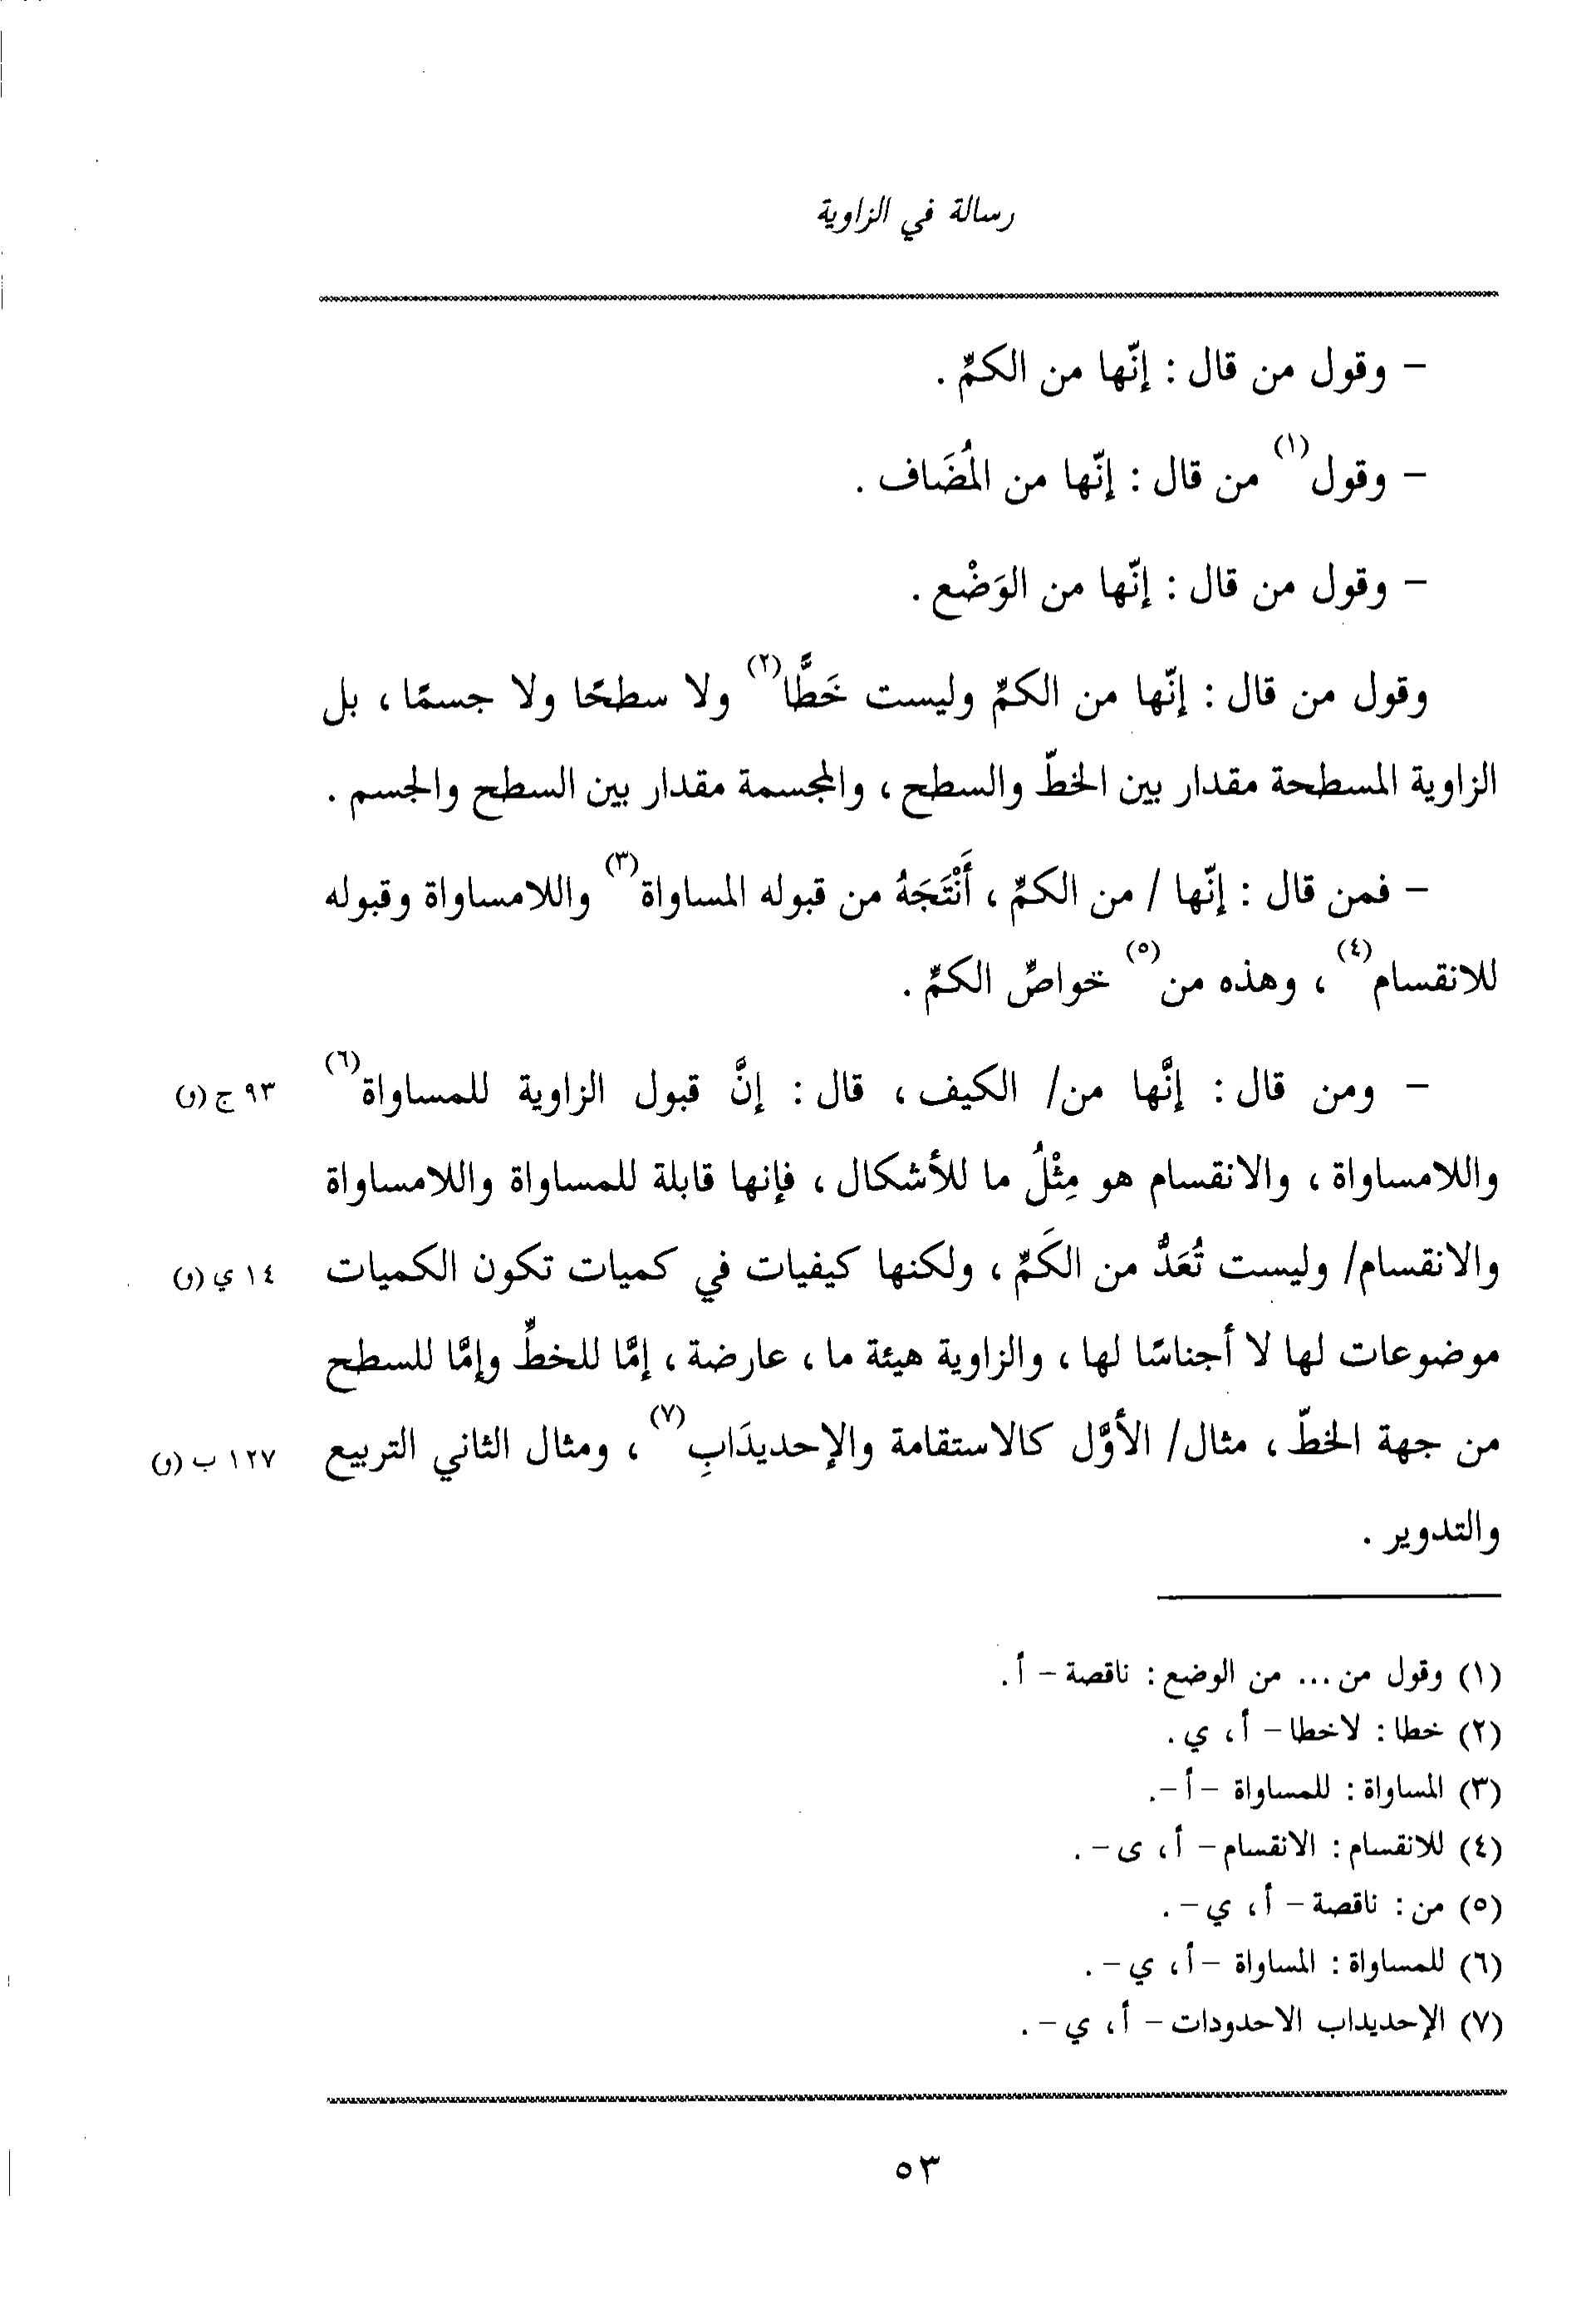 رسالة في الزاوية
– وقول من قال : إنّها من الكمِّ .
– وقول(١) من قال : إنّها من المُضَاف .
– وقول من قال : إنّها من الوَضْع .
وقول من قال : إنّها من الكمِّ وليست خَطًّا(٢) ولا سطحًا ولا جسمًا ، بل
الزاوية المسطحة مقدار بين الخطّ والسطح ، والمجسمة مقدار بين السطح والجسم .
– فمن قال : إنّها / من الكمِّ ، أَنْتَجَهُ من قبوله المساواة(٣) واللامساواة وقبوله
للانقسام(٤) ، وهذه من(٥) خواصِّ الكمِّ .
– ومن قال : إنَّها من/ الكيف ، قال : إنَّ قبول الزاوية للمساواة(٦) ٩٣ ج (و)
واللامساواة ، والانقسام هو مِثْلُ ما للأشكال ، فإنها قابلة للمساواة واللامساواة
والانقسام/ وليست تُعَدُّ من الكَمِّ ، ولكنها كيفيات في كميات تكون الكميات ١٤ ي (و)
موضوعات لها لا أجناسًا لها ، والزاوية هيئة ما ، عارضة ، إمَّا للخطِّ وإمَّا للسطح
من جهة الخطّ ، مثال/ الأوَّل كالاستقامة والإحديدَابِ(٧) ، ومثال الثاني التربيع ١٢٧ ب (و)
والتدوير .
(١) وقول من ... من الوضع : ناقصة – أ .
(٢) خطا : لاخطا – أ ، ي .
(٣) المساواة : للمساواة – أ –.
(٤) للانقسام : الانقسام – أ ، ى – .
(٥) من : ناقصة – أ ، ي – .
(٦) للمساواة : المساواة – أ ، ي – .
(٧) الإحديداب الاحدودات – أ ، ي – .
٥٣